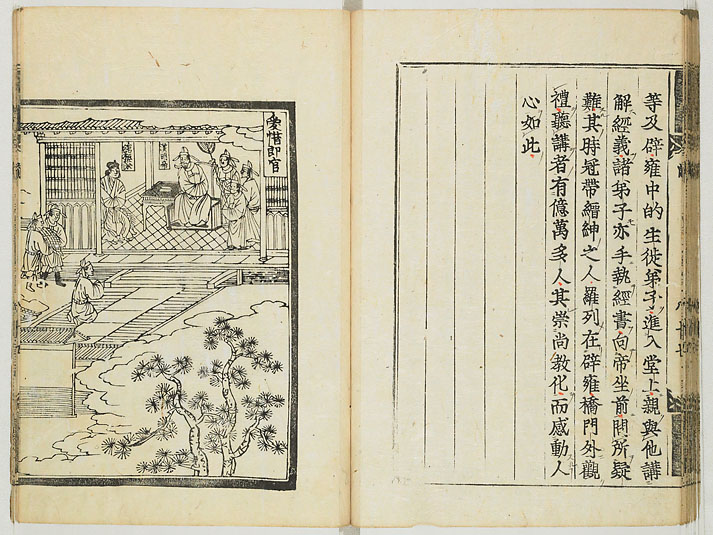 等及辟雍中的生徒弟子進入堂上親與他講
解經義諸弟子亦手執經書向帝坐前問所疑
難其時冠帶縉紳之人羅列在辟雍橋門外觀
禮聽講者有億萬多人其崇尚教化而感動人
心如此
愛惜郎官
漢明帝